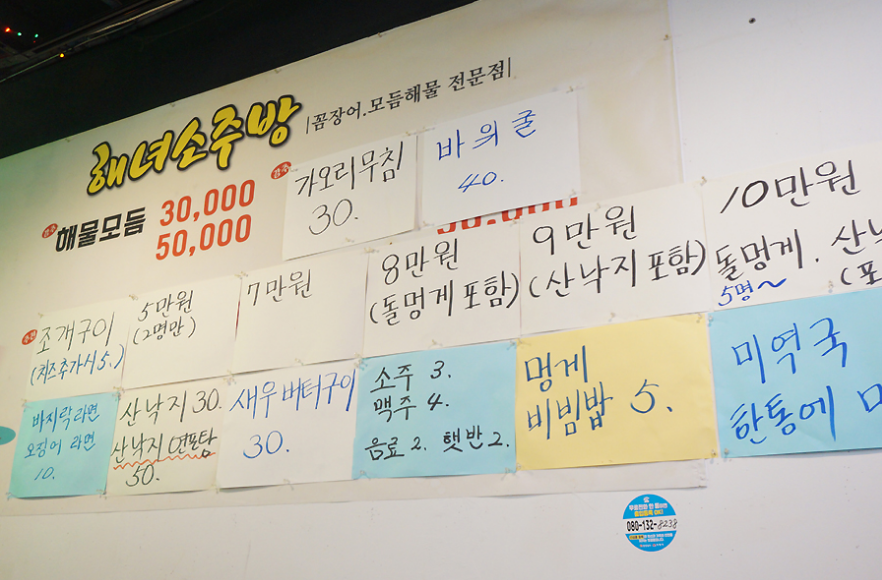 해녀소주방
|꼼장어.모듬해물 전문점|
해물모듬
30,000
50,000
가오리무침
30.
바위굴
40.
조개구이
(치즈추가시 5.)
5만원
(2명만)
7만원
8만원
(돌멍게 포함)
9만원
(산낙지 포함)
10만원
돌멍게. 산낙
5명~
(포
바지락라면
오징어 라면
10.
산낙지 30.
산낙지 연포탕
50.
새우버터구이
30.
소주 3.
맥주 4.
음료 2. 햇반 2.
멍게
비빔밥 5.
미역국
한통에
080-132-8238